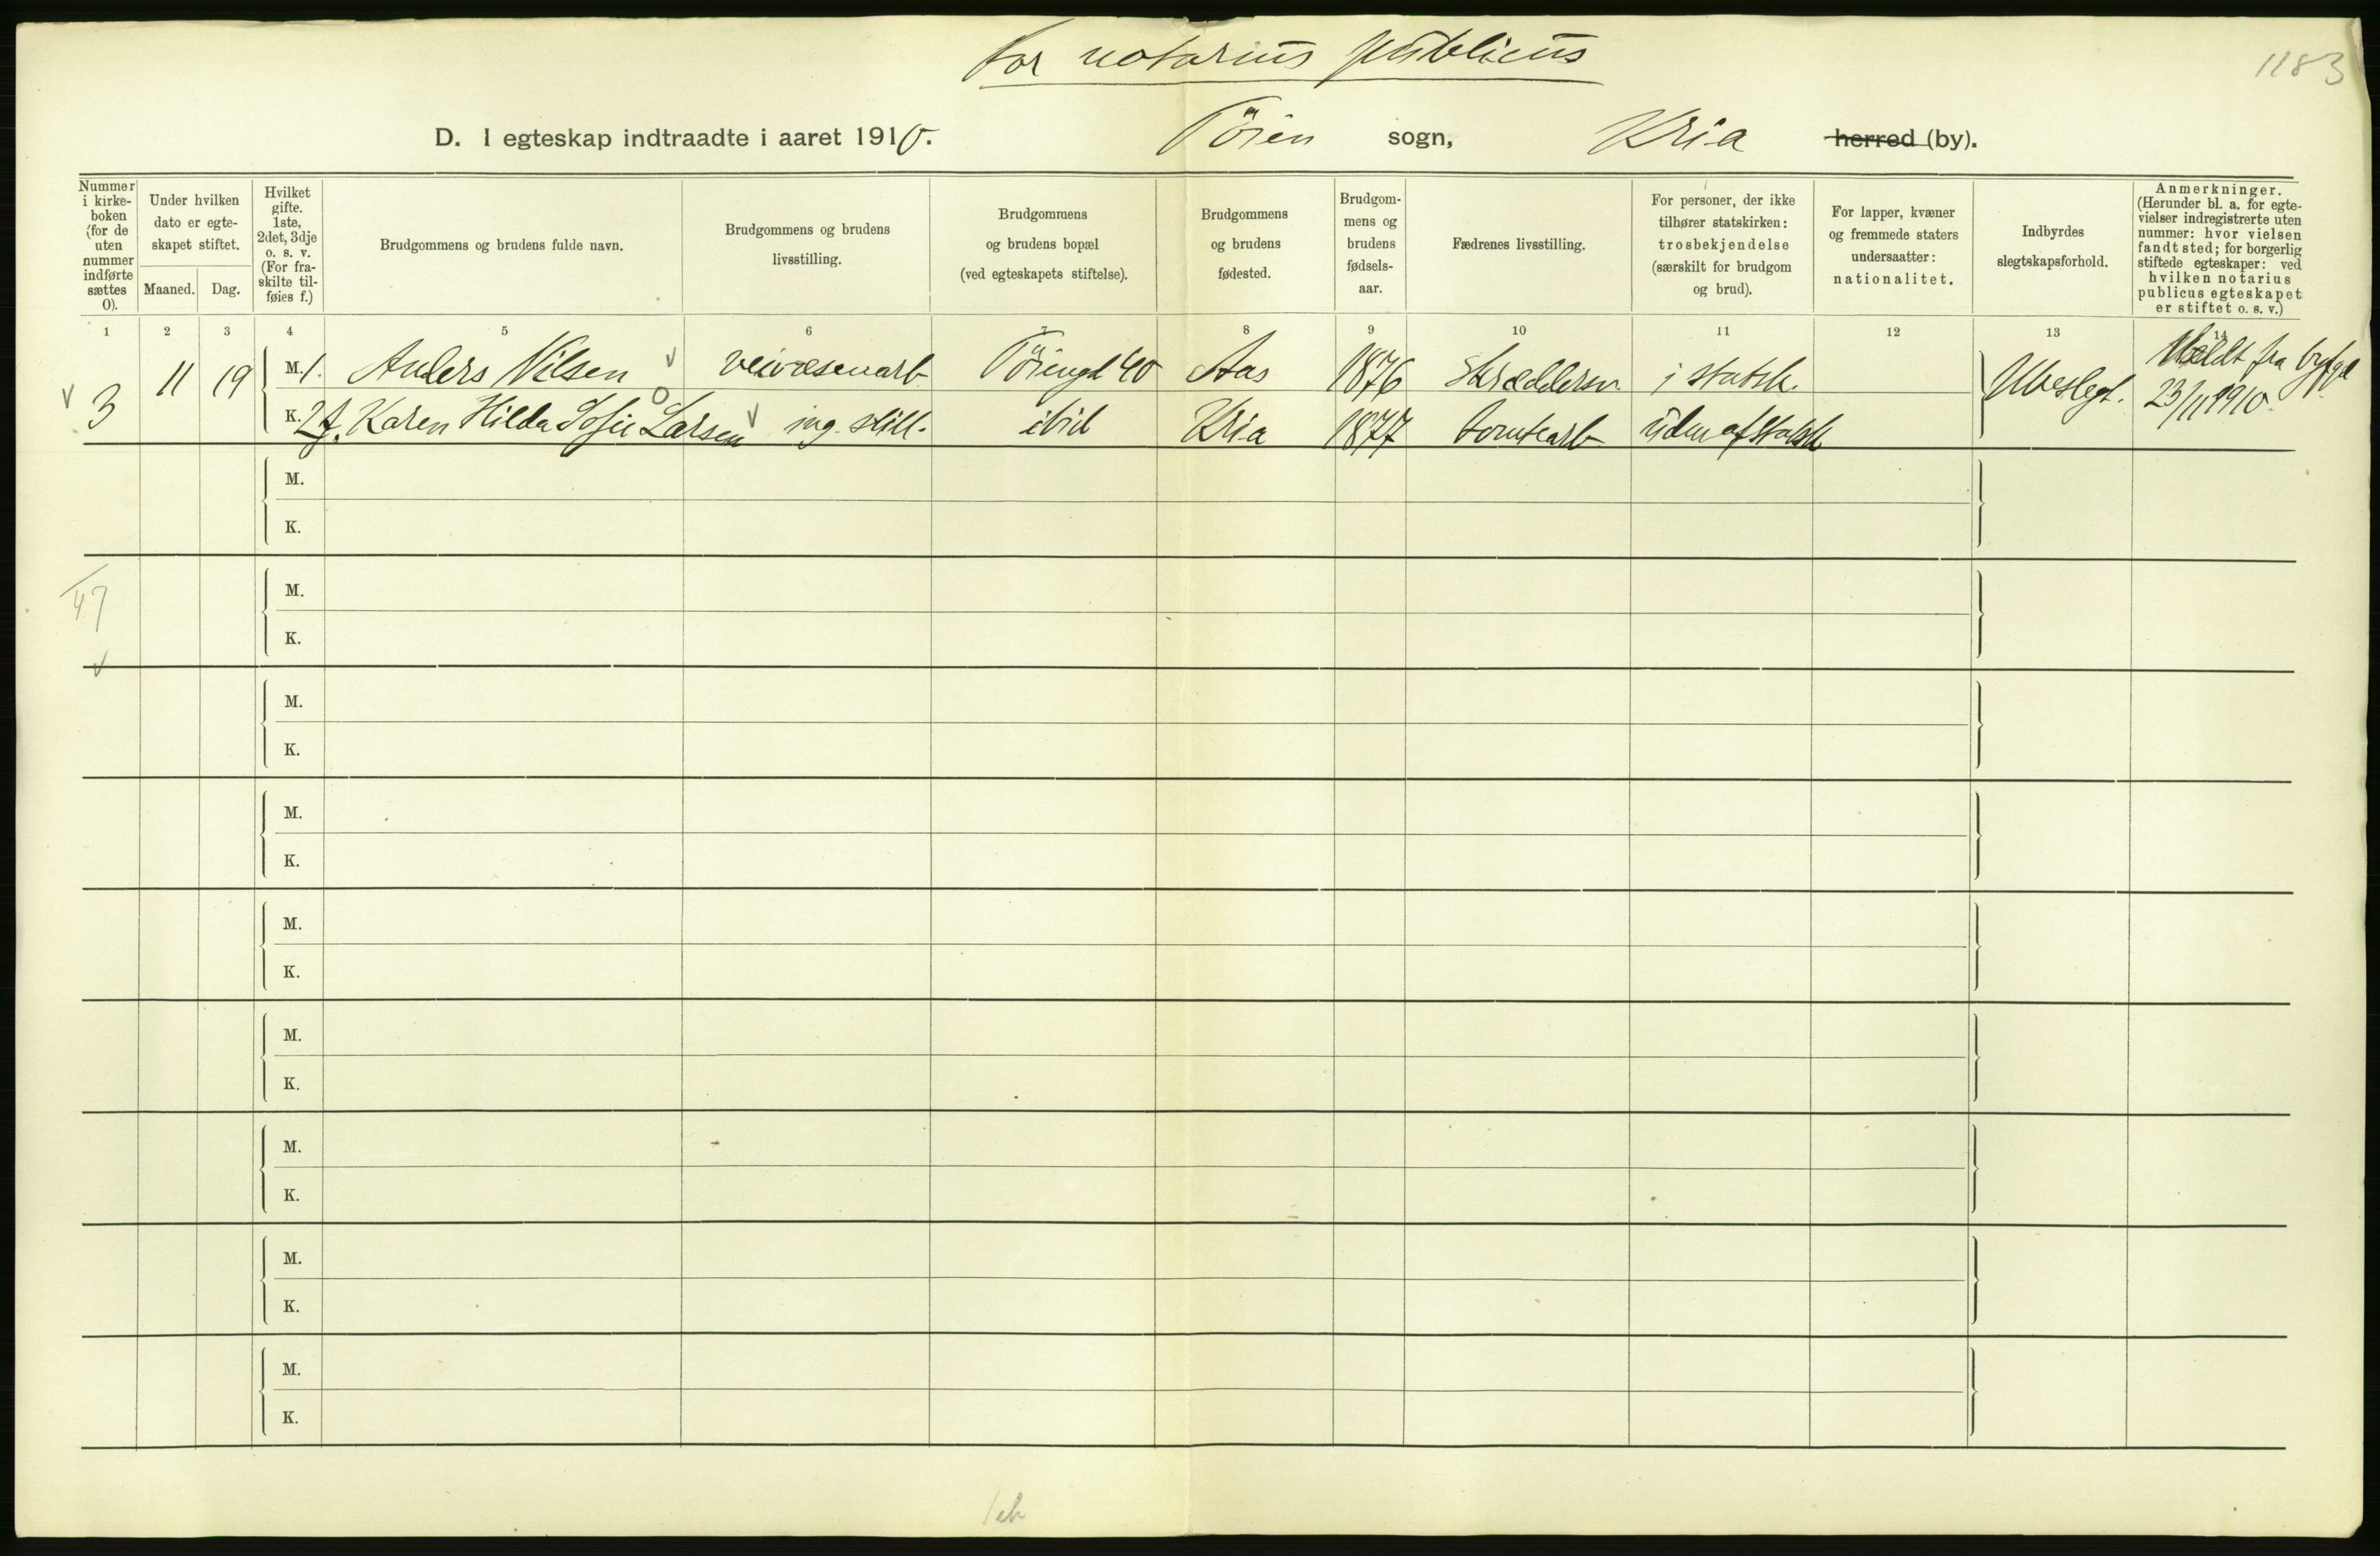 For notarius publicus
1183
D. I egteskap indtraadte i aaret 1910. Töien sogn, Kria herred (by).
Nummer
i kirke-
boken
(for de
uten
nummer
indførte
sættes
0).
Under hvilken
dato er egte-
skapet stiftet.
Maaned.
Dag.
Hvilket
gifte.
1ste,
2det, 3dje
o. s. v.
(For fra-
skilte til-
føies f.)
Brudgommens og brudens fulde navn.
Brudgommens og brudens
livsstilling.
Brudgommens
og brudens bopæl
(ved egteskapets stiftelse).
Brudgommens
og brudens
fødested.
Brudgom-
mens og
brudens
fødsels-
aar.
Fædrenes livsstilling.
For personer, der ikke
tilhører statskirken:
trosbekjendelse
(særskilt for brudgom
og brud).
For lapper, kvæner
og fremmede staters
undersaatter:
nationalitet.
Indbyrdes
slegtskapsforhold.
Anmerkninger.
(Herunder bl. a. for egte-
vielser indregistrerte uten
nummer: hvor vielsen
fandt sted; for borgerlig
stiftede egteskaper: ved
hvilken notarius
publicus egteskapet
er stiftet o. s. v.)
1 2 3 4 5 6 7 8 9 10 11 12 13 14
3 11 19
M. 1. Anders Nilsen veivæsenarb Töiengd 40 Aas 1876 Skræddersv. i statsk. Ubeslegt.
K. 2 f. Karen Hilda Sofie Larsen ing. still. ibid Kria 1877 tomtearb uden af statsk
Meldt fra byfgd
23/11 1910.
M.
K.
47
M.
K.
M.
K.
M.
K.
M.
K.
M.
K.
M.
K.
M.
K.
M.
K.